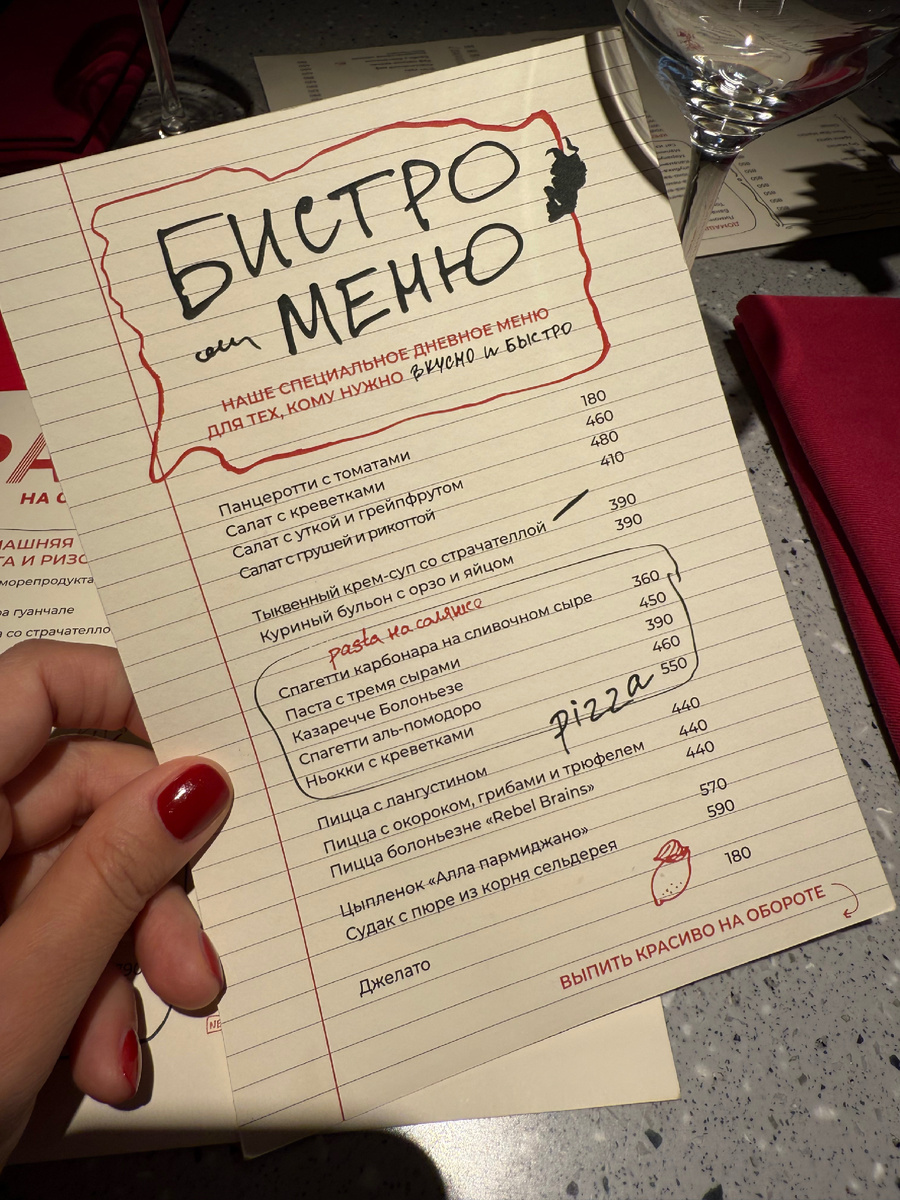 БИСТРО
МЕНЮ
НАШЕ СПЕЦИАЛЬНОЕ ДНЕВНОЕ МЕНЮ
ДЛЯ ТЕХ, КОМУ НУЖНО ВКУСНО И БЫСТРО
Панцеротти с томатами 180
Салат с креветками 460
Салат с уткой и грейпфрутом 480
Салат с грушей и рикоттой 410
Тыквенный крем-суп со страчателлой 390
Куриный бульон с орзо и яйцом 390
pasta
Спагетти карбонара на сливочном сыре 360
Паста с тремя сырами 450
Казаречче Болоньезе 390
Спагетти аль-помодоро 460
Ньокки с креветками 550
pizza
Пицца с лангустином 440
Пицца с окороком, грибами и трюфелем 440
Пицца болоньезне «Rebel Brains» 440
Цыпленок «Алла пармиджано» 570
Судак с пюре из корня сельдерея 590
Джелато 180
ВЫПИТЬ КРАСИВО НА ОБОРОТЕ
РА
НА С
МАШНЯЯ
ТА И РИЗО
морепродукта
ра гуанчале
а со страчателло